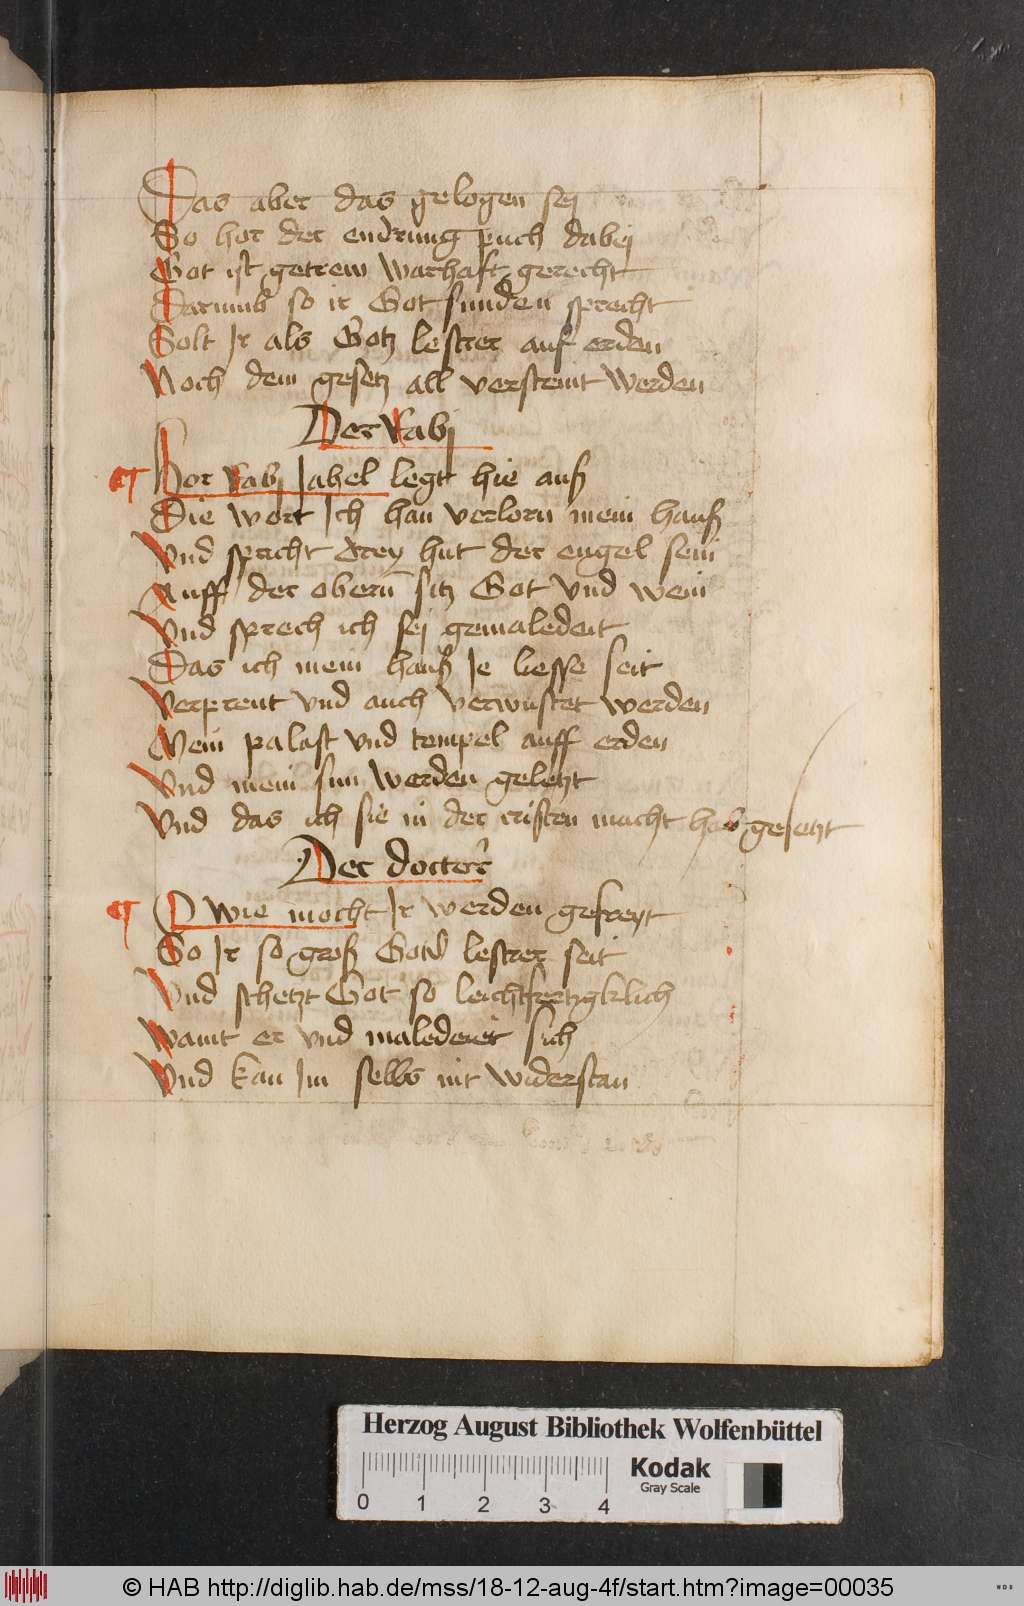 Das aber das gelogen sej
So hor der endrung puch dabej
Got ist getrew warhaft gerecht
Darumb so ir Got sunden sprecht
Solt Ir als Gotz lestrer auf erden
Noch dem gesetz all versteint werden
Der Rabj
Hor Rabj Jabel legt hie auß
Die wort Ich han verlorn mein hauß
Vnd spricht drey hut der engel sein
Auff der obern sitz Got vnd wein
Vnd sprech ich sej gemaledeit
Das ich mein hauß Je liesse seit
Verprent vnd auch verwustet werden
Mein palast vnd tempel auff erden
Vnd mein sun werden geletzt
Vnd das ich sie in der cristen macht hab gesetzt
Der docter
O wie mocht Ir werden gefreyt
So Ir so groß Gotz lestrer seit
Vnd schetzt Got so leichtfertygklich
Waint er vnd maledeiet sich
Vnd kan Im selbs nit widerstan
Herzog August Bibliothek Wolfenbüttel
Kodak
Gray Scale
0 1 2 3 4
© HAB http://diglib.hab.de/mss/18-12-aug-4f/start.htm?image=00035